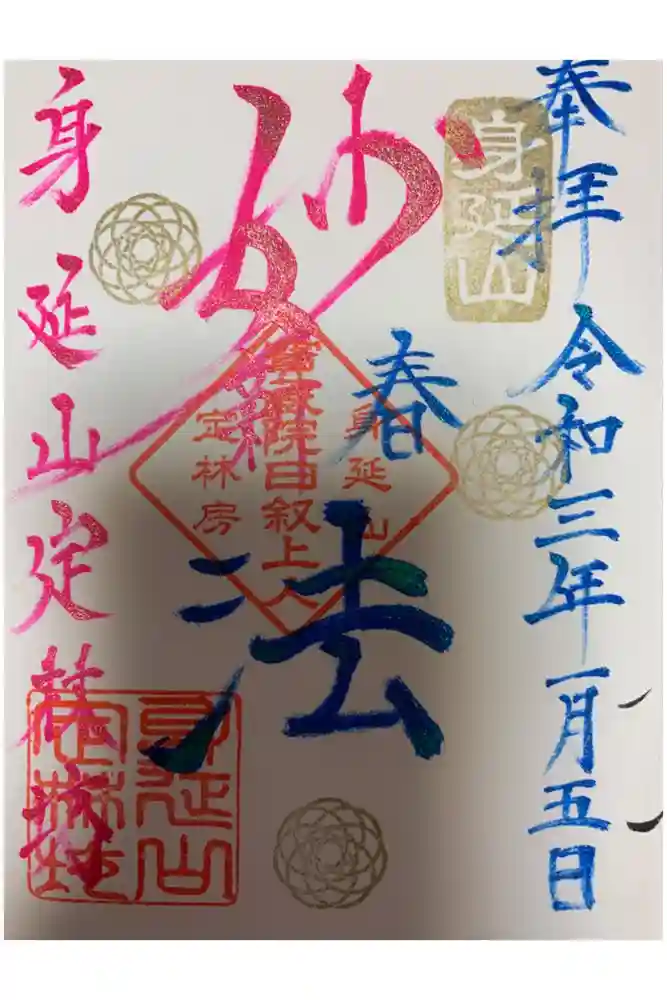 奉拝 令和三年一月五日
身延山
妙法
春
身延山
宝蔵院日叙上人
定林房
身延山定林坊
身延山
定林坊